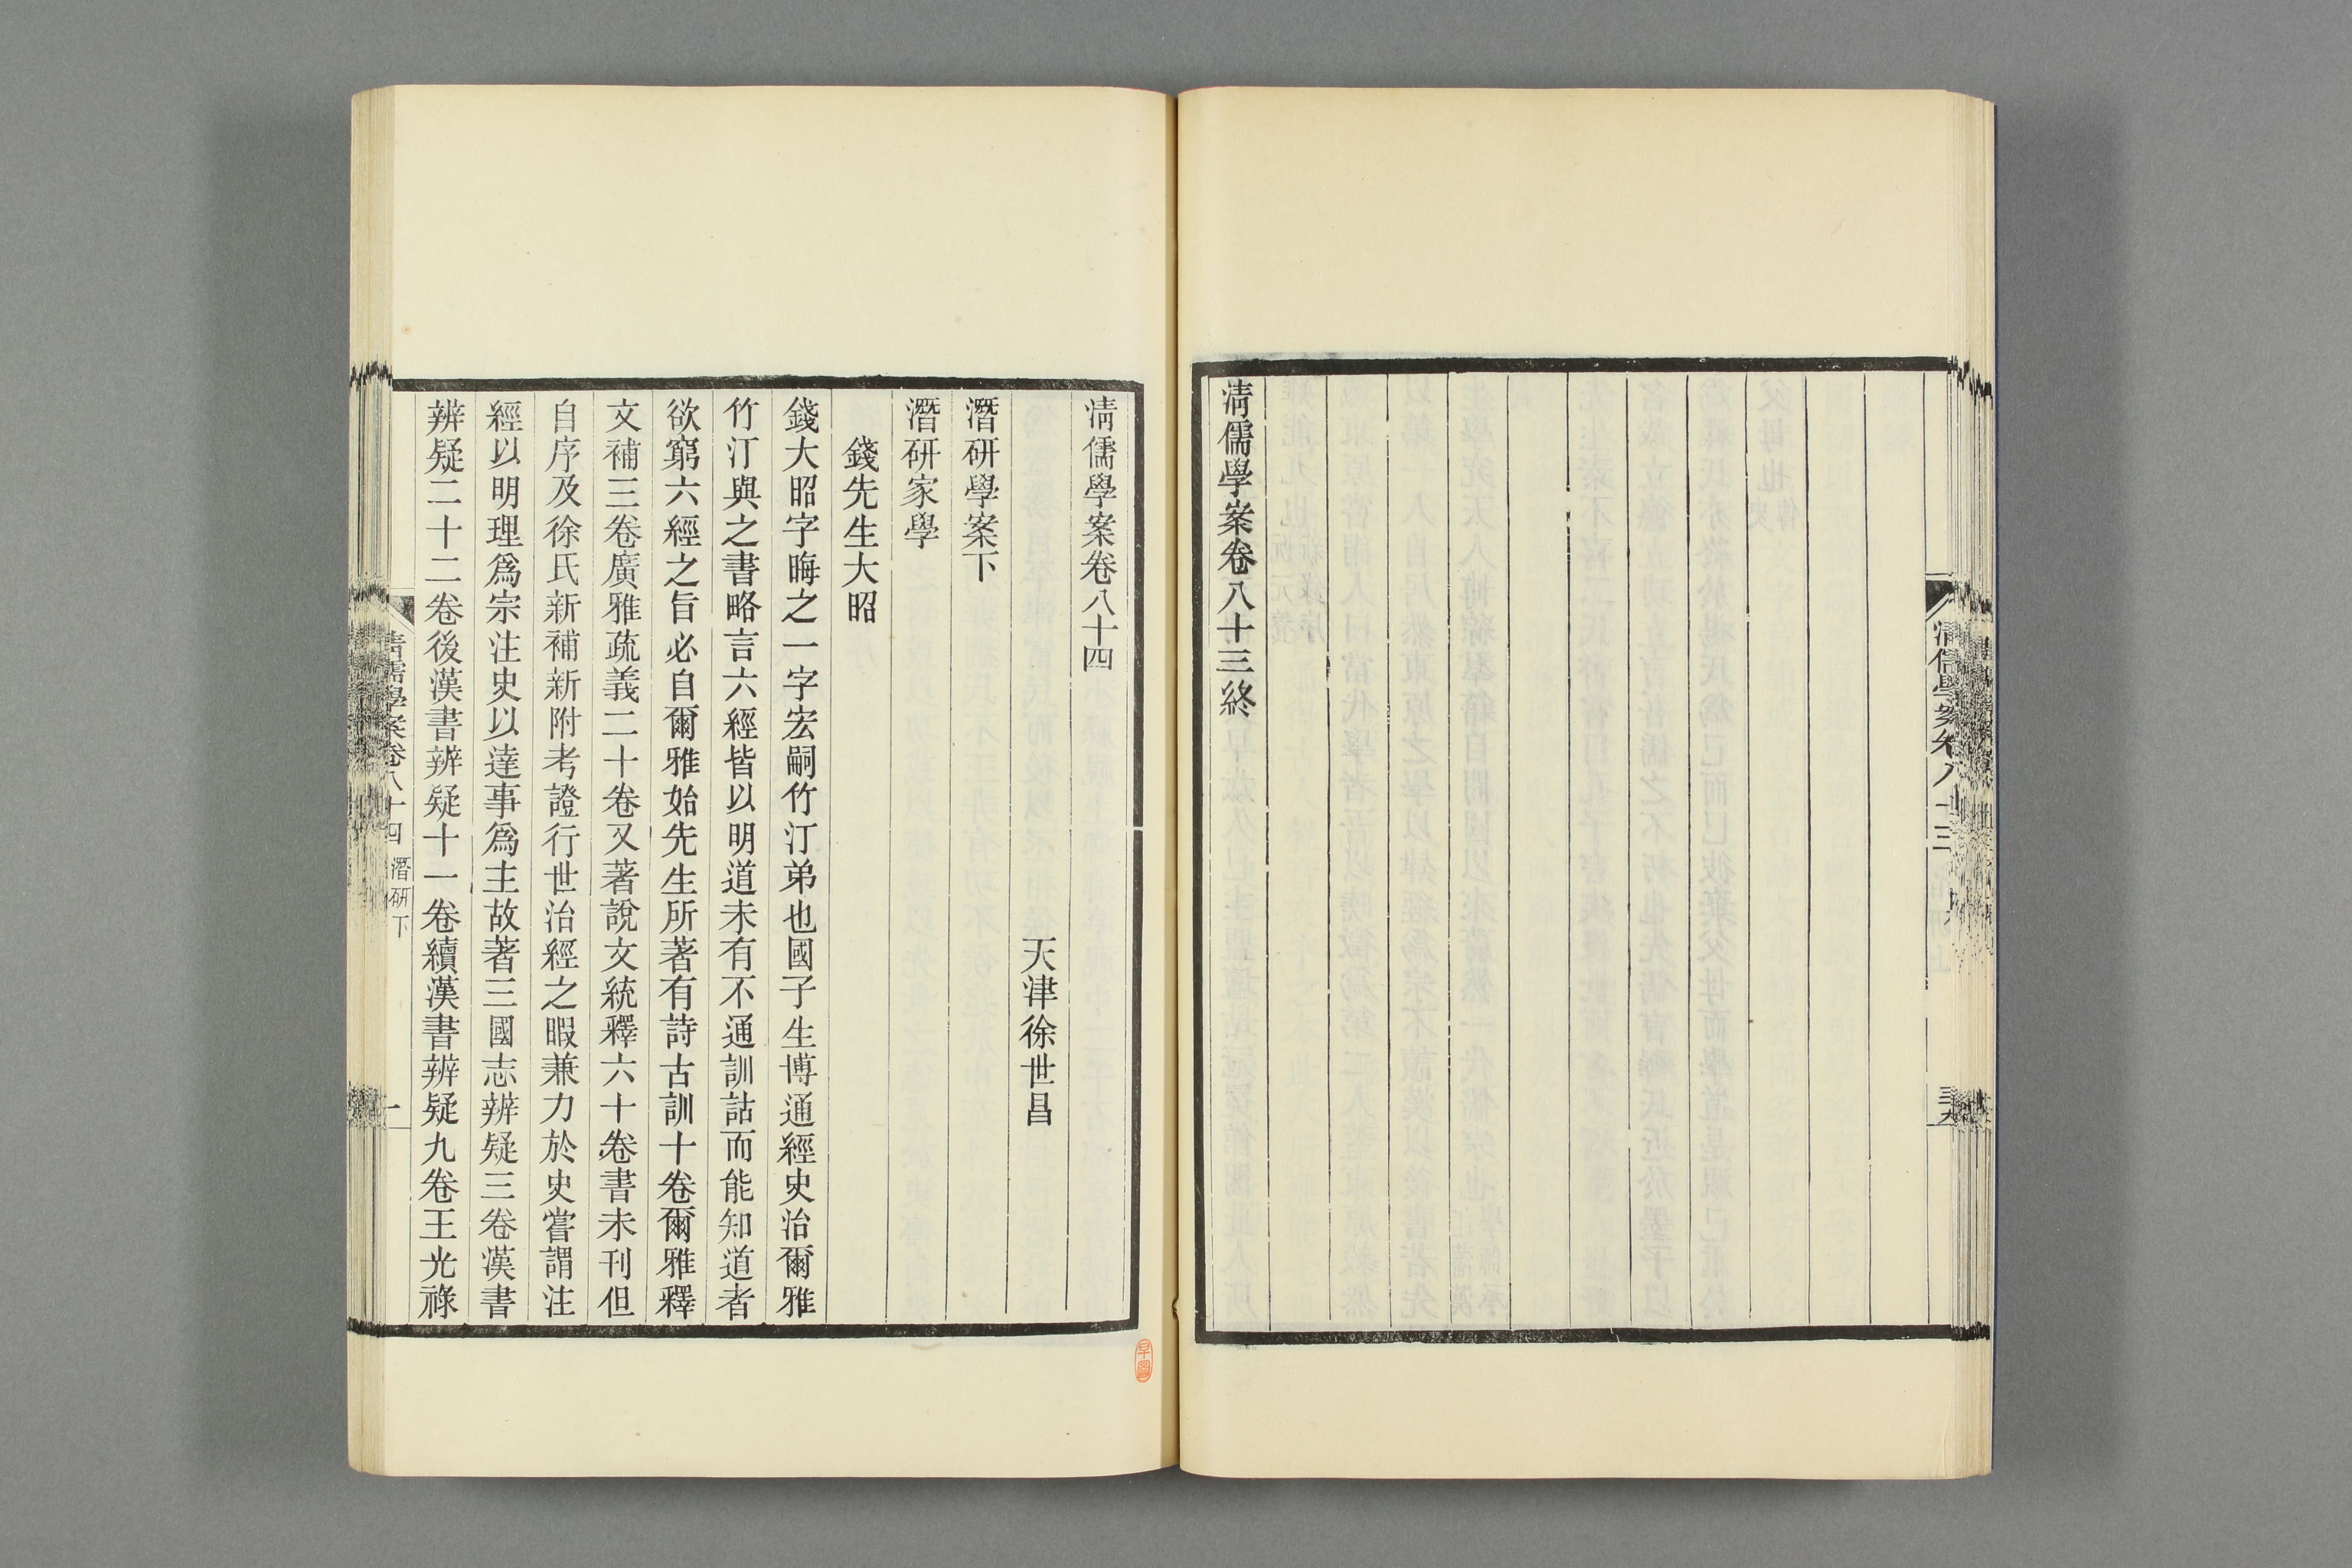 清儒學案卷八十三
清儒學案卷八十三終
清儒學案卷八十四
天津徐世昌
潛研學案下
潛研家學
錢先生大昭
錢大昭字晦之一字宏嗣竹汀弟也國子生博通經史治爾雅
竹汀與之書略言六經皆以明道未有不通訓詁而能知道者
欲窮六經之旨必自爾雅始先生所著有詩古訓十卷爾雅釋
文補三卷廣雅疏義二十卷又著說文統釋六十卷書未刊但
自序及徐氏新補新附考證行世治經之暇兼力於史嘗謂注
經以明理爲宗注史以達事爲主故著三國志辨疑三卷漢書
辨疑二十二卷後漢書辨疑十一卷續漢書辨疑九卷王光祿
清儒學案卷八十四 潛研下
一
早圖